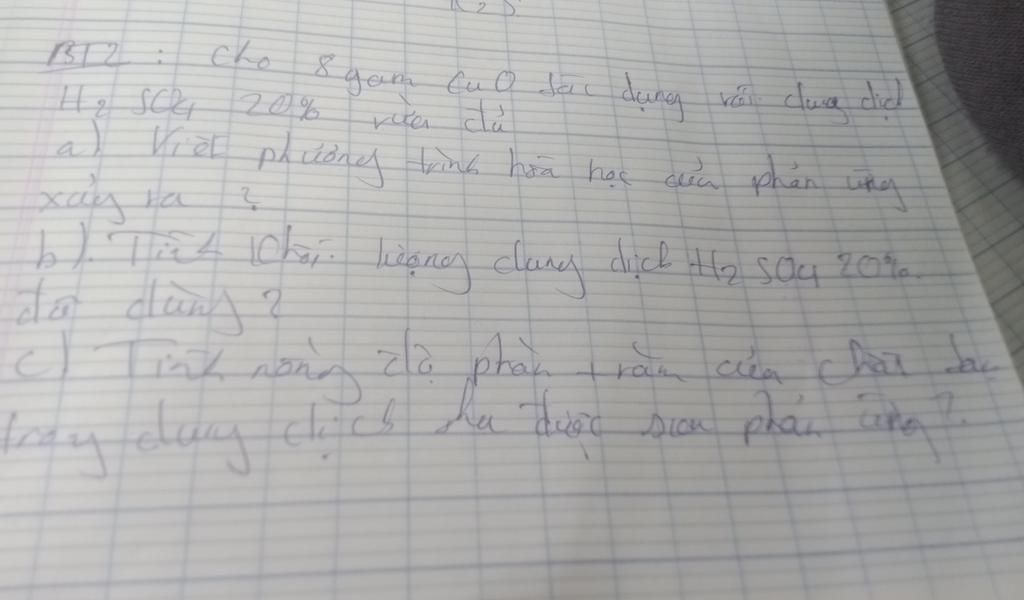 BT2 : Cho 8 gam CuO tác dụng với dung dịch
H2 SO4 20% vừa đủ
a) Viết phương trình hóa học của phản ứng
xảy ra ?
b). Tính khối lượng dung dịch H2 SO4 20%.
đã dùng ?
c) Tính nồng độ phần trăm của chất
dung dịch thu được sau phản ứng ?.